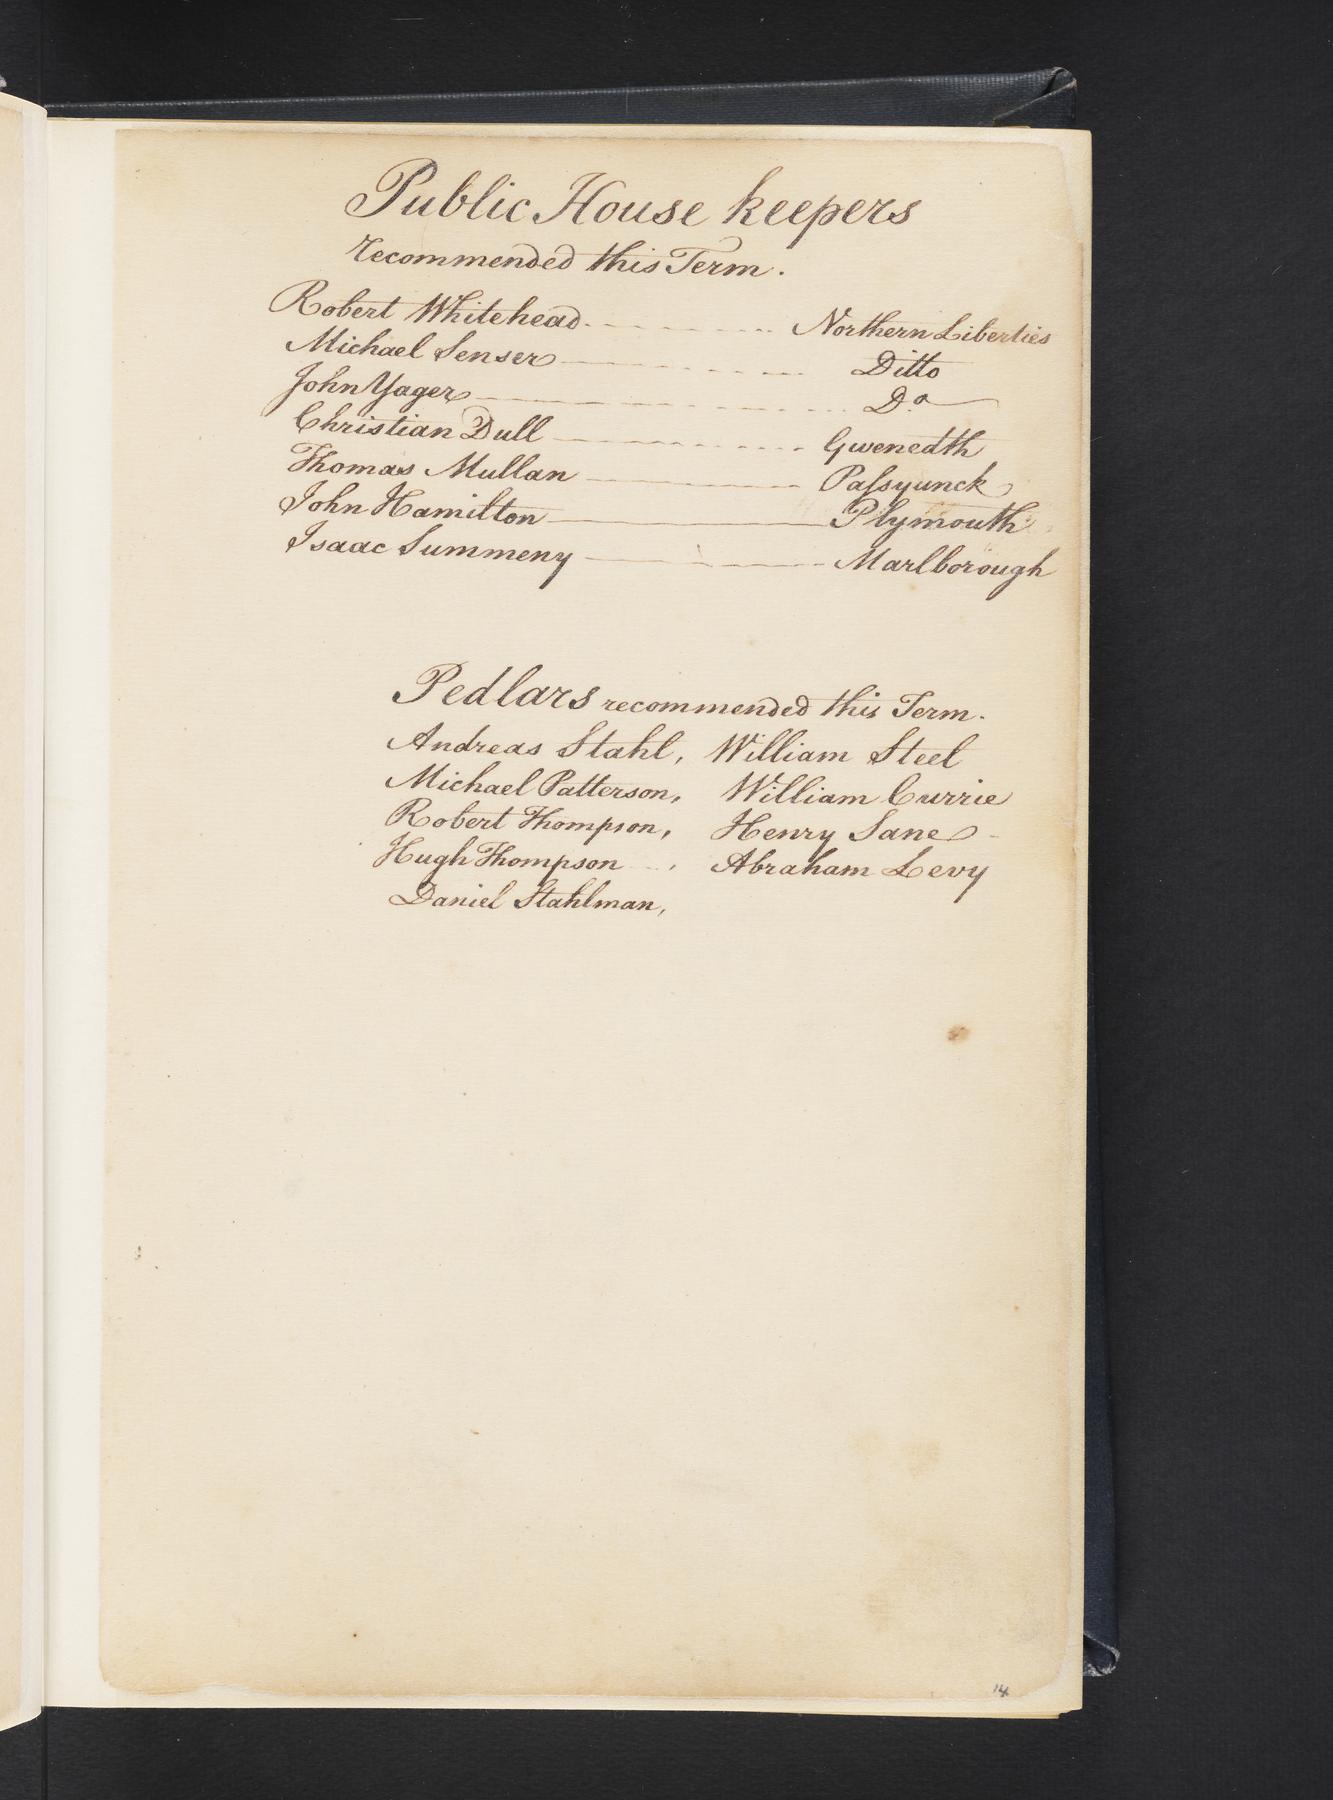 Public House keepers
recommended this Term.
Robert Whitehead - - - - - - - - Northern Liberties
Michael Senser - - - - - - - - Ditto
John Yager - - - - - - - - Do
Christian Dull - - - - - - - - Gwenedth
Thomas Mullan - - - - - - - - Paſsyunck
John Hamilton - - - - - - - - Plymouth
Isaac Summeny - - - - - - - - Marlborough
Pedlars recommended this Term.
Andreas Stahl, William Steel
Michael Patterson, William Currie
Robert Thompson, Henry Sane -
Hugh Thompson - , Abraham Levy
Daniel Stahlman,
14